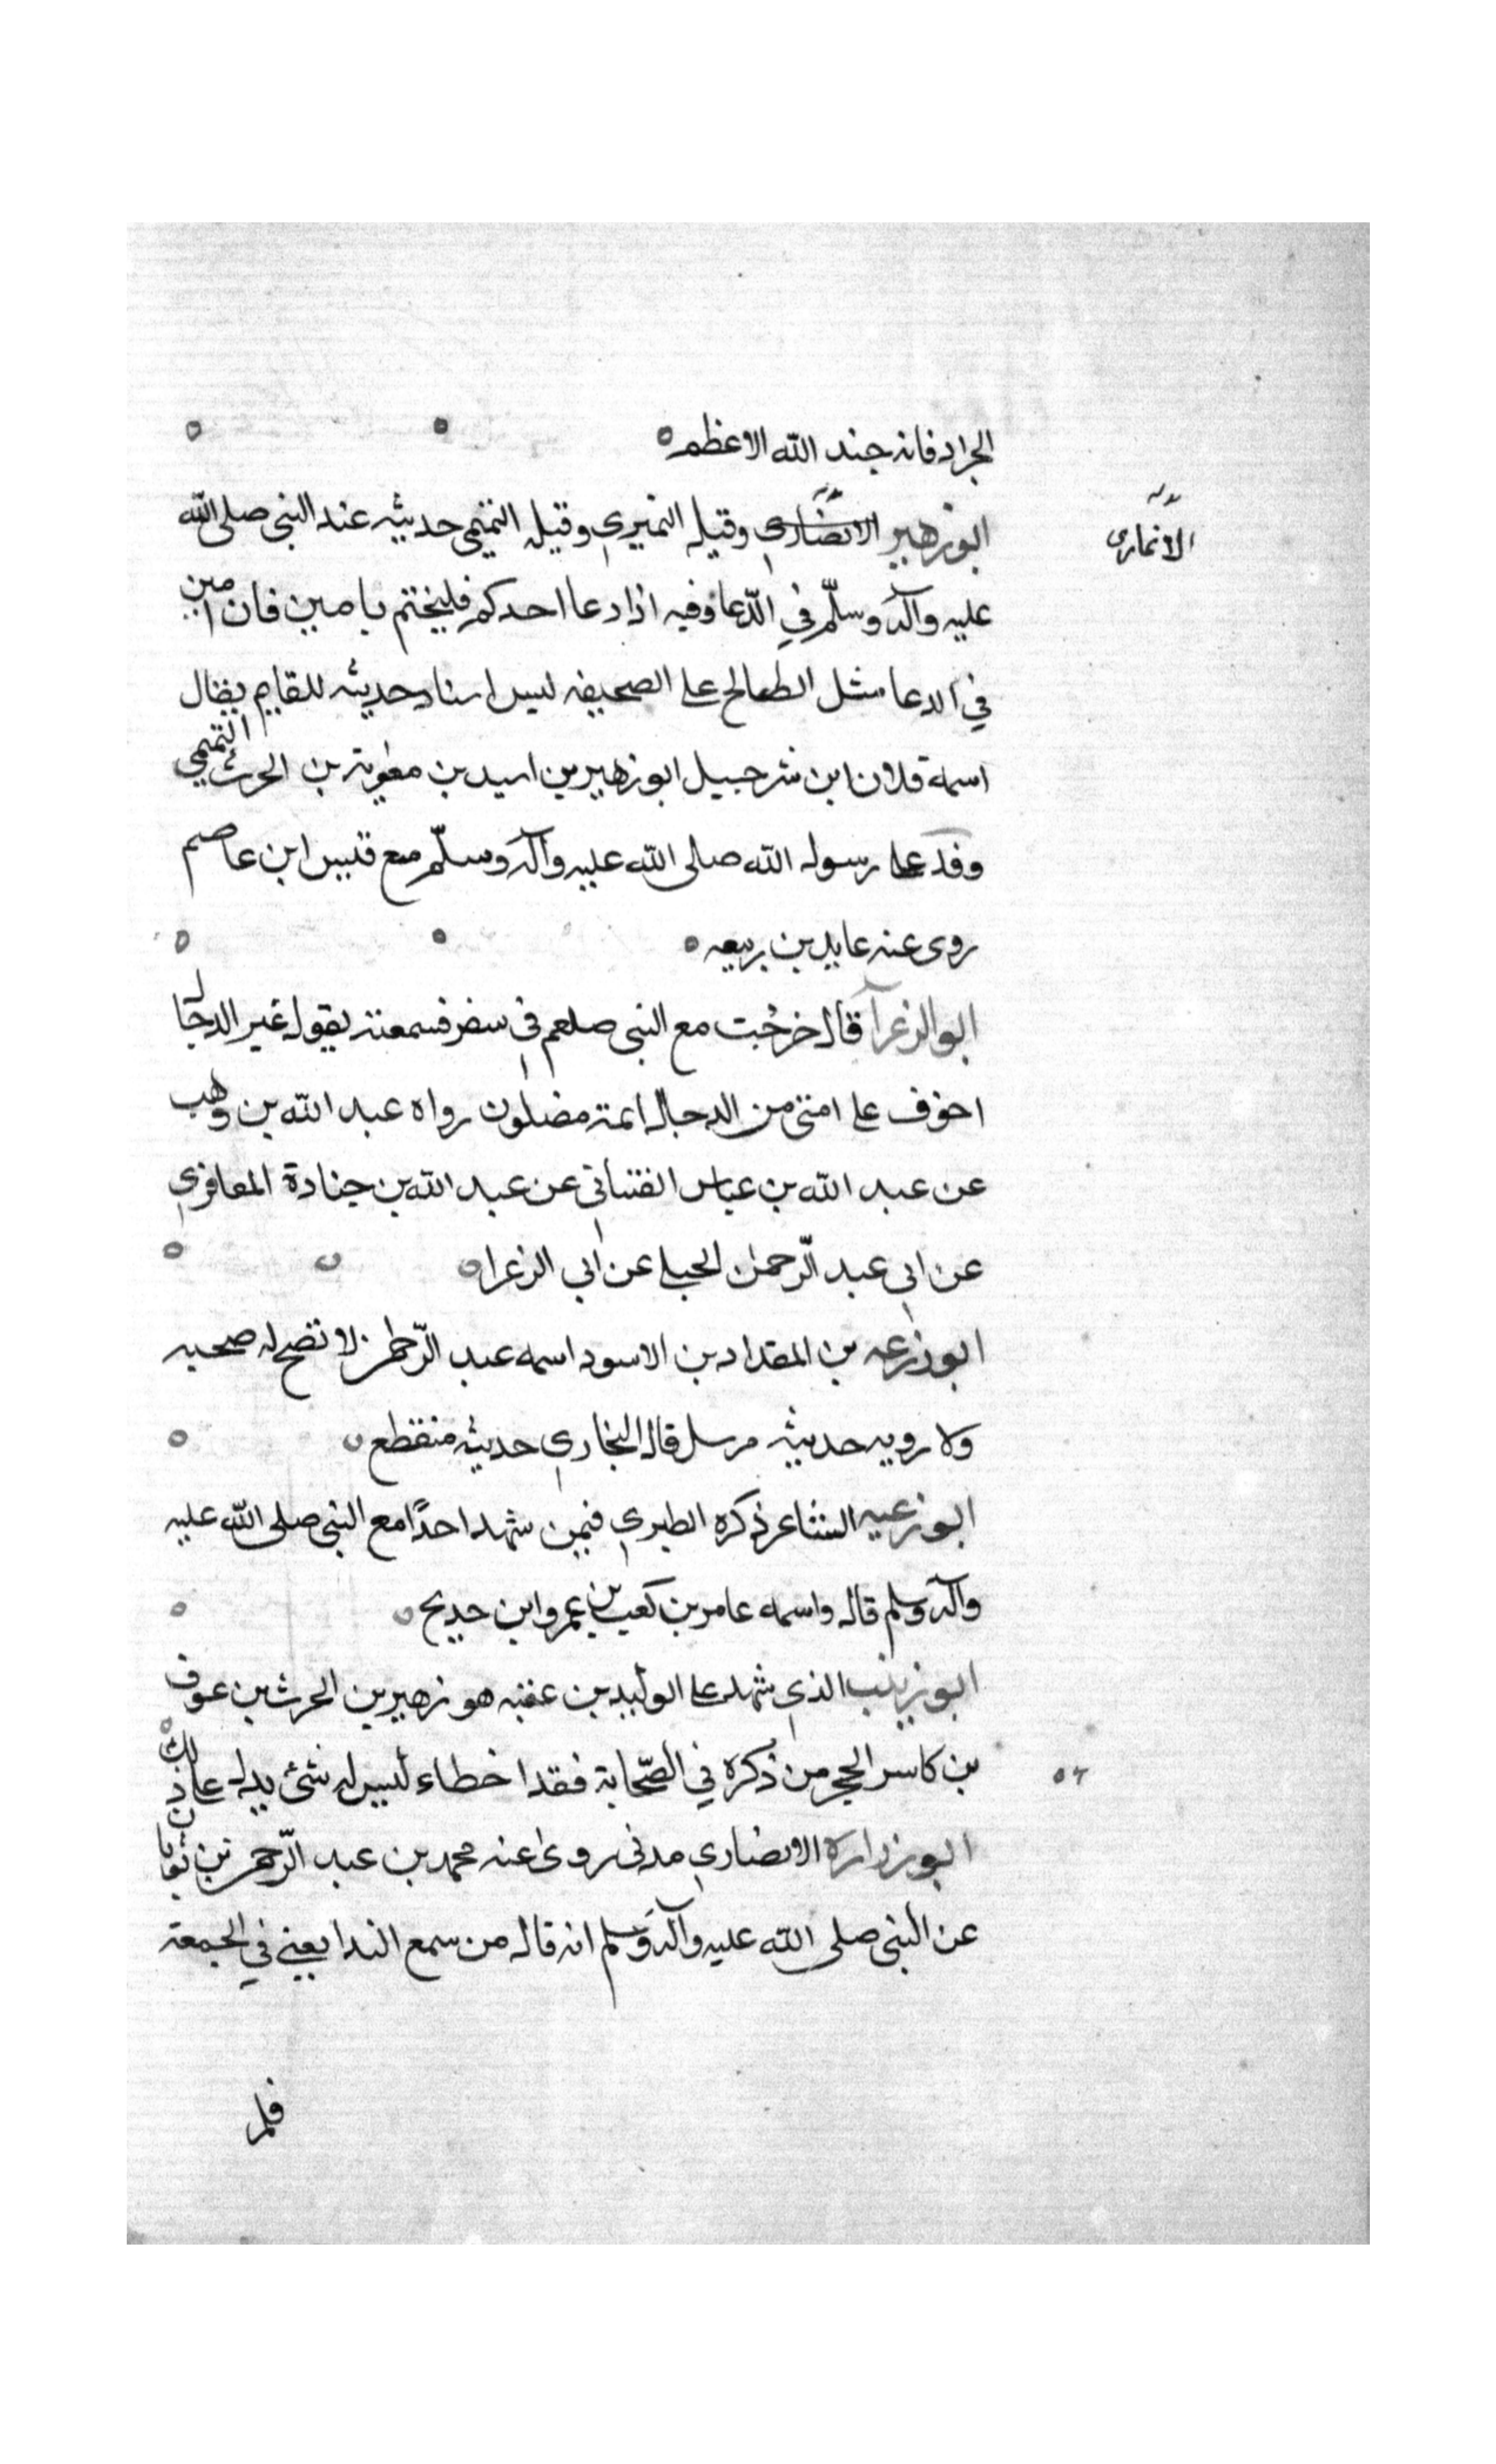 الجراد فانه جند الله الاعظم
ابو زهير الانصاري وقيل النميري وقيل التميمي حديثه عند النبي صلى الله
الانماري
عليه وآله وسلّم في الدّعا وفيه اذا دعا احدكم فليختم بامين فان امين
في الدعا مثل الطابع على الصحيفه ليس اسناد حديثه للقايم يقال
اسمه فلان ابن شرحبيل ابو زهير بن اسيد بن معوية بن الحرث التميمي
وفد على رسول الله صلى الله عليه وآله وسلّم مع قيس ابن عاصم
روى عنه عايد بن ربيعه
ابو الزعرآ قال خرجت مع النبي صلعم في سفر فسمعته يقول غير الدجال
اخوف على امتي من الدجال ائمة مضلون رواه عبد الله بن وهب
عن عبد الله بن عياس القتباني عن عبد الله بن جنادة المعافري
عن ابي عبد الرّحمن الحبلي عن ابي الزعرا
ابو زرعه بن المقداد بن الاسود اسمه عبد الرّحمن لا تصح له صحبه
ولا رويه حديثه مرسل قال البخاري حديثه منقطع
ابو زعنه الشاعر ذكره الطبري فيمن شهد احدًا مع النبي صلى الله عليه
وآله وسلم قال واسمه عامر بن كعب بن عمرو ابن حديج
ابو زينب الذي شهد على الوليد بن عقبه هو زهير بن الحرث بن عوف
بن كاسر الحجر من ذكره في الصّحابة فقد اخطاء ليس له شئ يدل على ذلك
٥٢
ابو زرارة الانصاري مدني روى عنه محمد بن عبد الرّحمن بن ثوبان
عن النبي صلى الله عليه وآله وسلم انه قال من سمع الندا يعني في الجمعة
فلم